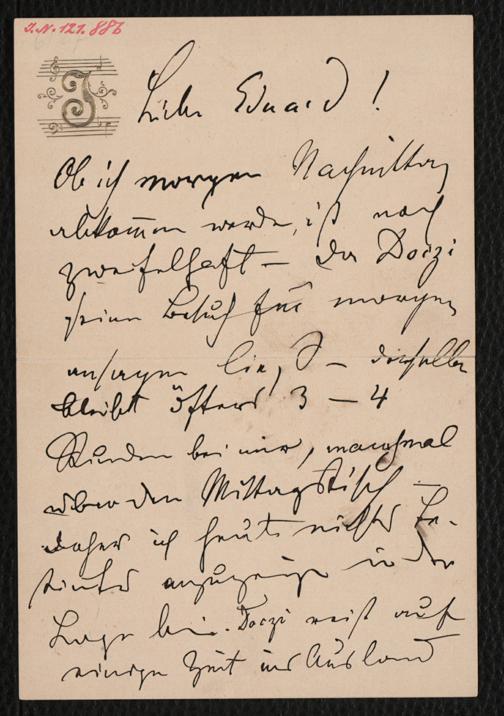 J. N. 121.886
J
Lieber Eduard!
Ob ich morgen Nachmittag
abkommen werde, ist noch
zweifelhaft – da Doczi
seinen Besuch für morgen
ansagen ließ – derselbe
bleibt öfters 3 – 4
Stunden bei mir, manchmal
über den Mittagstisch –
daher ich heute nichts Be-
stimmtes anzuzeigen in der
Lage bin. Doczi reist auf
einige Zeit ins Ausland